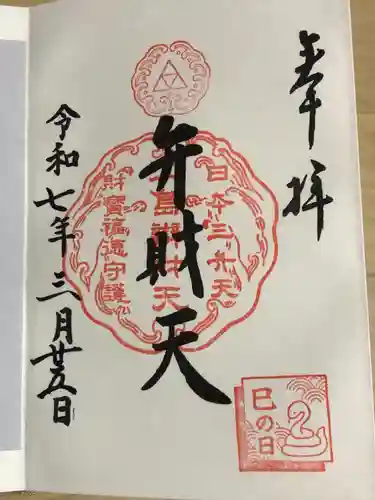 奉拝
日本三弁天
江島辨財天
財寶福徳守護
弁財天
令和七年三月廿五日
巳の日